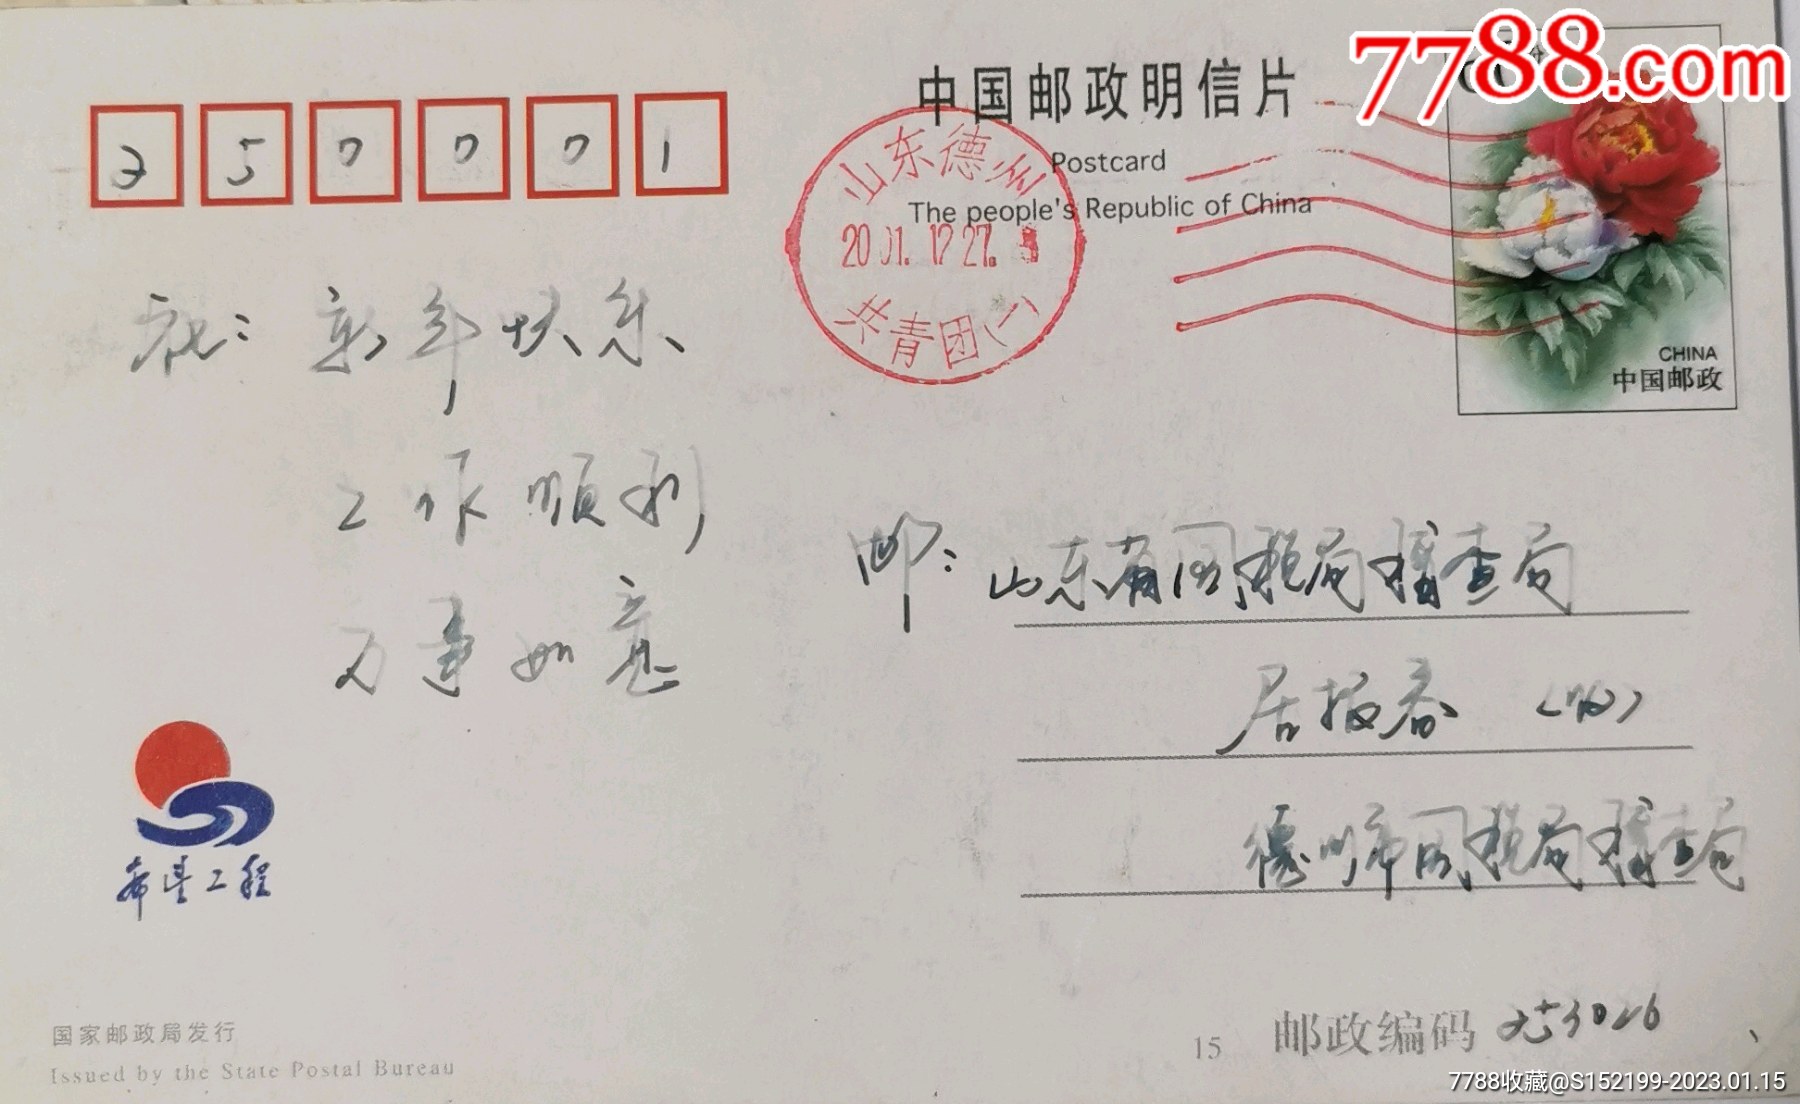 7788.com
中国邮政明信片
Postcard
The people's Republic of China
250001
山东德州
2001.12.27.
共青团(一)
CHINA
中国邮政
祝：新年快乐
工作顺利
万事如意
邮：山东省国税局稽查局
居报春（收）
德州市国税局稽查局
希望工程
国家邮政局发行
Issued by the State Postal Bureau
15
邮政编码 253026
7788收藏@S152199-2023.01.15